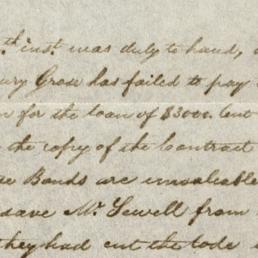 th inst was duly to hand,
Grose has failed to pay
for the loan of $3000. but
the copy of the Contract
Bonds are invaluable
save Mr. Sewell from
they had cut the lode